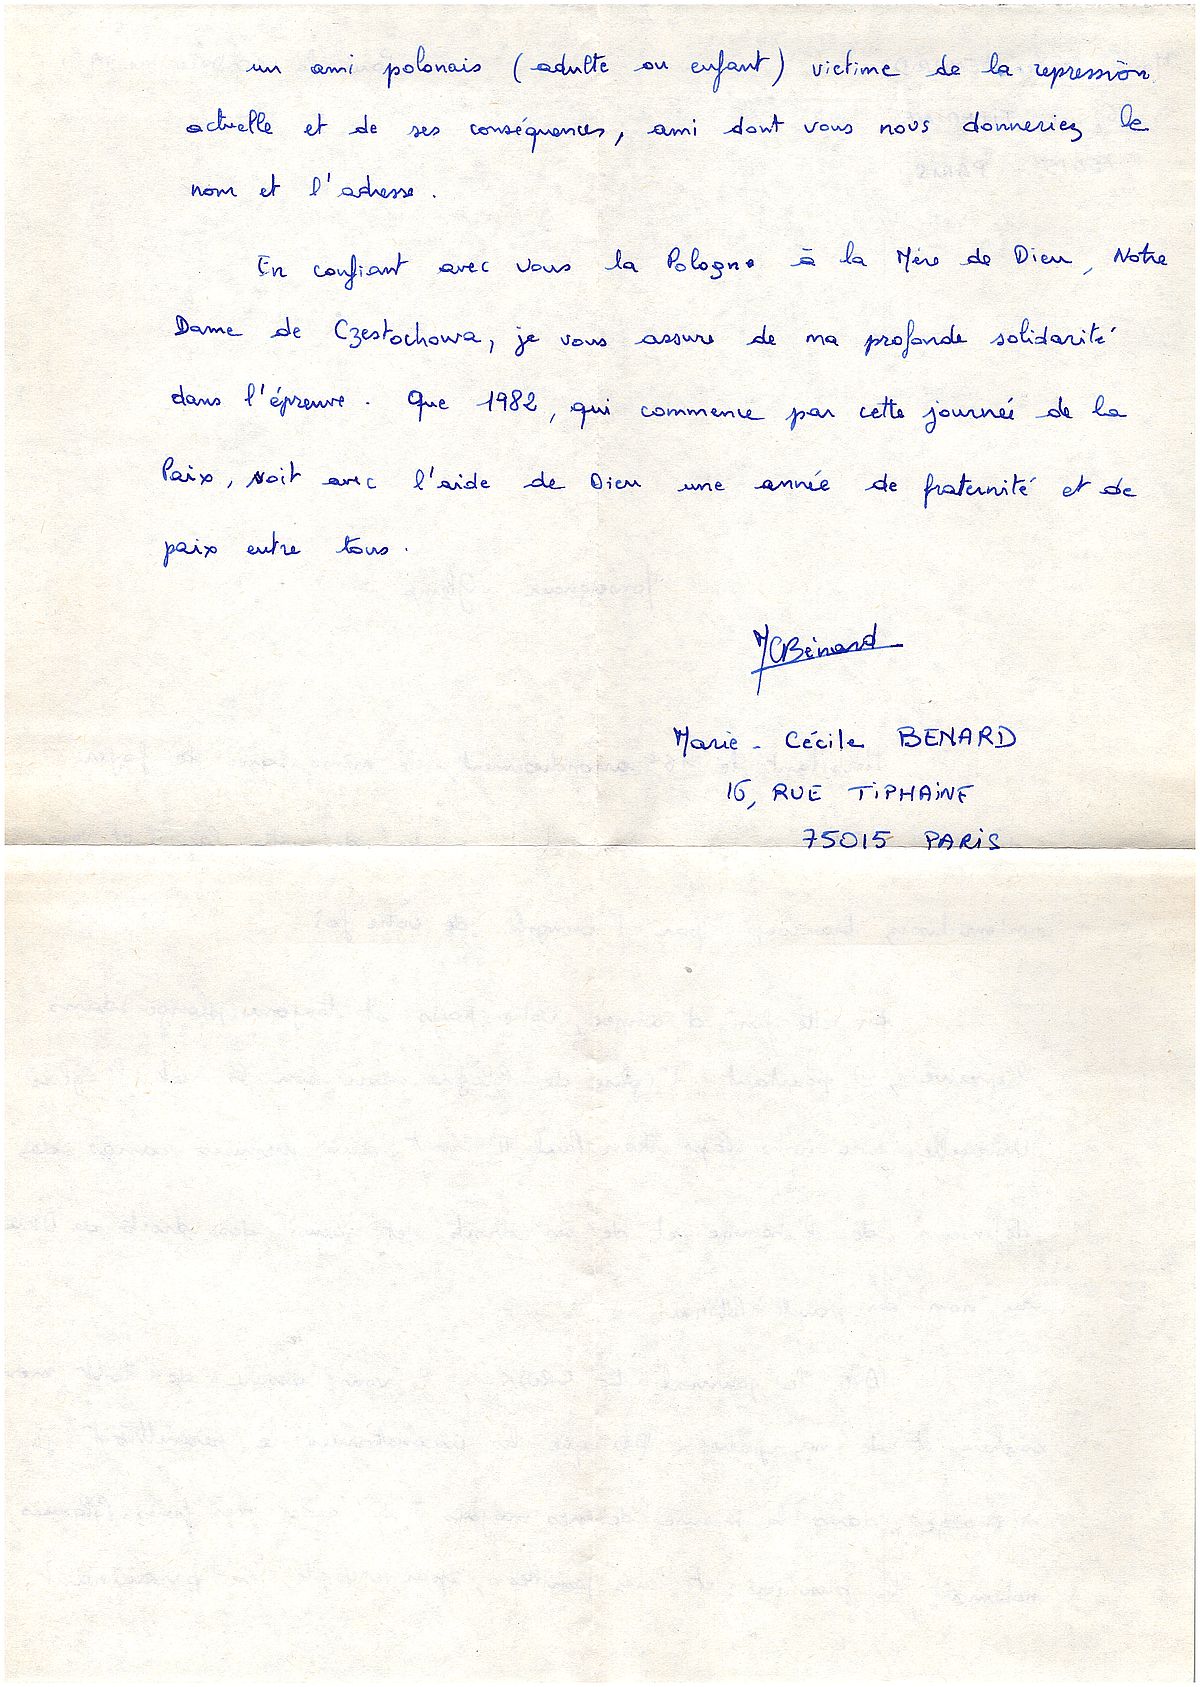 un ami polonais (adulte ou enfant) victime de la repression
actuelle et de ses conséquences, ami dont vous nous donneriez le
nom et l'adresse.
En confiant avec vous la Pologne à la Mère de Dieu, Notre
Dame de Czestochowa, je vous assure de ma profonde solidarité
dans l'épreuve. Que 1982, qui commence par cette journée de la
Paix, soit avec l'aide de Dieu une année de fraternité et de
paix entre tous.
MCBénard
Marie-Cécile BENARD
16, RUE TiPHAiNE
75015 PARiS